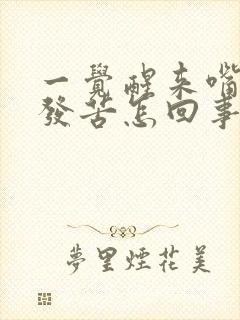 一覺醒来嘴
發苦怎回事
夢里煙花美